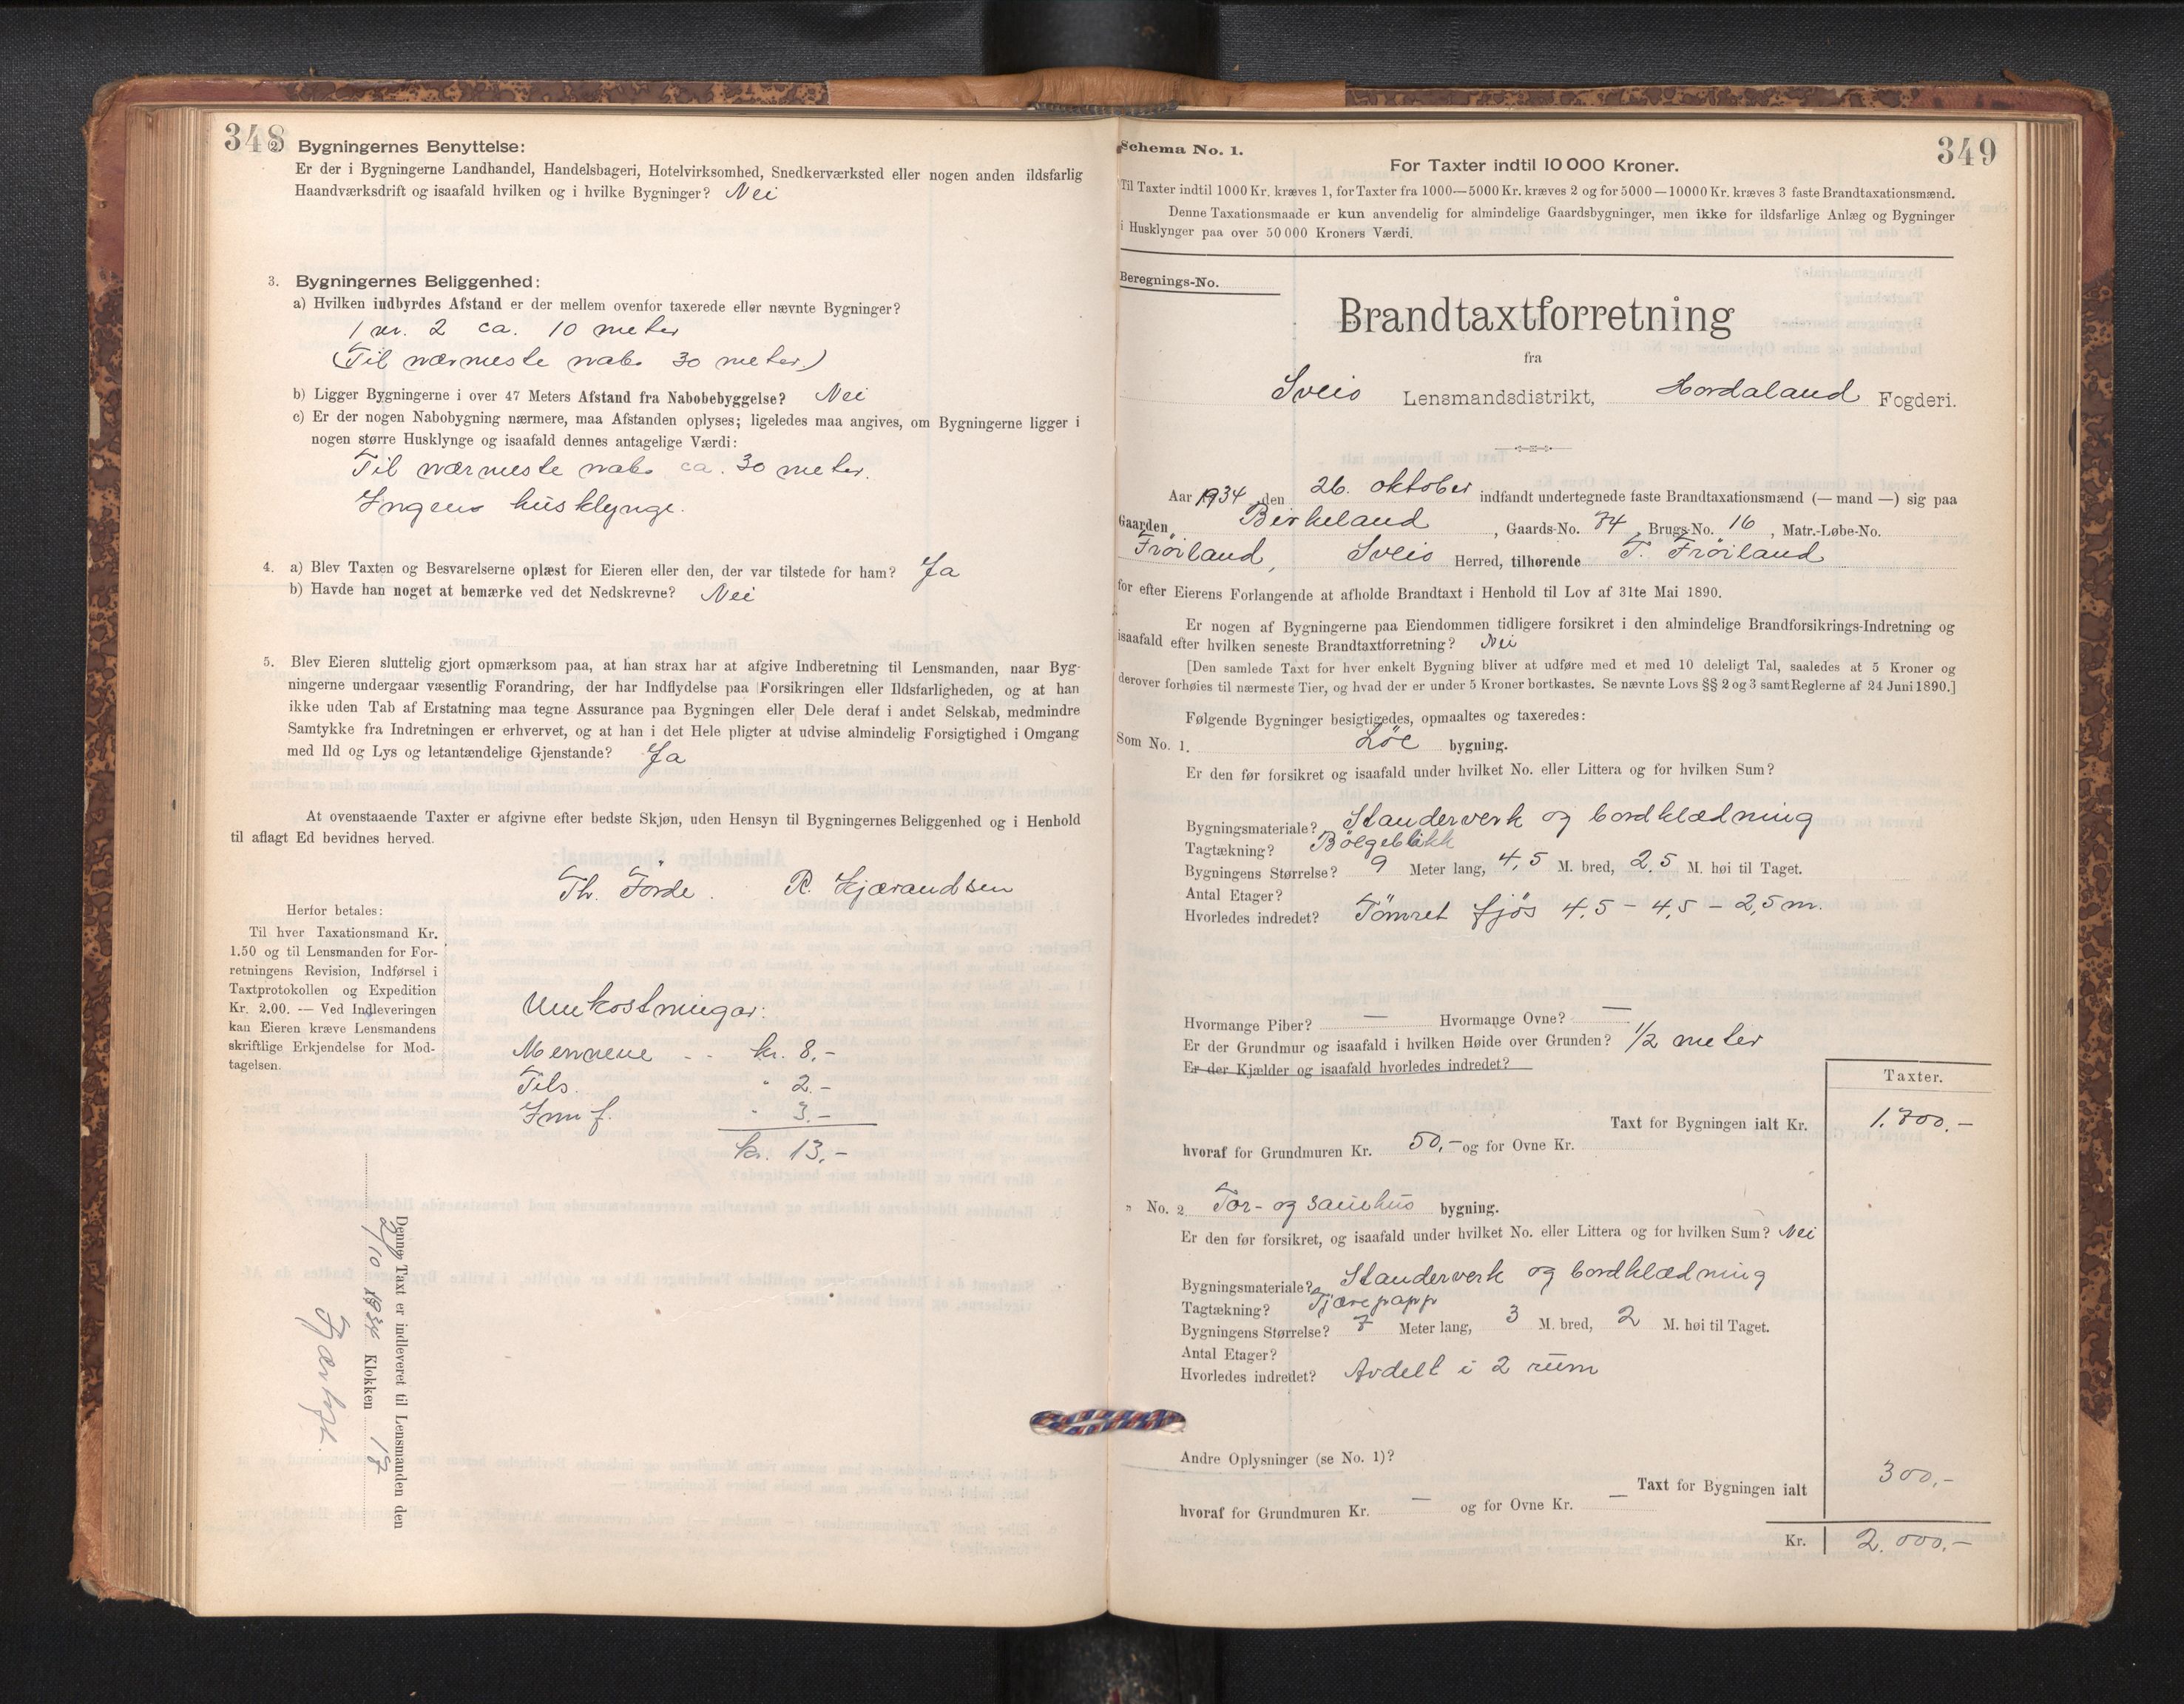 348
2. Bygningernes Benyttelse:
Er der i Bygningerne Landhandel, Handelsbageri, Hotelvirksomhed, Snedkerværksted eller nogen anden ildsfarlig
Haandværksdrift og isaafald hvilken og i hvilke Bygninger? Nei
3. Bygningernes Beliggenhed:
a) Hvilken indbyrdes Afstand er der mellem ovenfor taxerede eller nævnte Bygninger?
1 nr. 2 ca. 10 meter
(Til nærmeste nabo 30 meter)
b) Ligger Bygningerne i over 47 Meters Afstand fra Nabobebyggelse? Nei
c) Er der nogen Nabobygning nærmere, maa Afstanden oplyses; ligeledes maa angives, om Bygningerne ligger i
nogen større Husklynge og isaafald dennes antagelige Værdi:
Til nærmeste nabo ca. 30 meter.
Ingen husklynge.
4. a) Blev Taxten og Besvarelserne oplæst for Eieren eller den, der var tilstede for ham? Ja
b) Havde han noget at bemærke ved det Nedskrevne? Nei
5. Blev Eieren sluttelig gjort opmærksom paa, at han strax har at afgive Indberetning til Lensmanden, naar Byg-
ningerne undergaar væsentlig Forandring, der har Indflydelse paa Forsikringen eller Ildsfarligheden, og at han
ikke uden Tab af Erstatning maa tegne Assurance paa Bygningen eller Dele deraf i andet Selskab, medmindre
Samtykke fra Indretningen er erhvervet, og at han i det Hele pligter at udvise almindelig Forsigtighed i Omgang
med Ild og Lys og letantændelige Gjenstande? Ja
At ovenstaaende Taxter er afgivne efter bedste Skjøn, uden Hensyn til Bygningernes Beliggenhed og i Henhold
til aflagt Ed bevidnes herved.
Th. Førde. R. Kjærandsen
Herfor betales:
Til hver Taxationsmand Kr.
1.50 og til Lensmanden for For-
retningens Revision, Indførsel i
Taxtprotokollen og Expedition
Kr. 2.00. — Ved Indleveringen
kan Eieren kræve Lensmandens
skriftlige Erkjendelse for Mod-
tagelsen.
Umkostningar:
Mennene - - kr. 8,-
Tils. " 2.-
Innf. " 3.-
kr. 13,-
Denne Taxt er indleveret til Lensmanden den
27/10 1934 Klokken 17
349
Schema No. 1.
For Taxter indtil 10 000 Kroner.
Til Taxter indtil 1000 Kr. kræves 1, for Taxter fra 1000—5000 Kr. kræves 2 og for 5000—10000 Kr. kræves 3 faste Brandtaxationsmænd.
Denne Taxationsmaade er kun anvendelig for almindelige Gaardsbygninger, men ikke for ildsfarlige Anlæg og Bygninger
i Husklynger paa over 50 000 Kroners Værdi.
Beregnings-No.
Brandtaxtforretning
fra
Sveio Lensmandsdistrikt, Hordaland Fogderi.
Aar 1934 den 26. oktober indfandt undertegnede faste Brandtaxationsmænd (— mand —) sig paa
Gaarden Birkeland, Gaards-No. 74, Brugs-No. 16, Matr.-Løbe-No.
Frøiland, Sveio Herred, tilhørende T. Frøiland
for efter Eierens Forlangende at afholde Brandtaxt i Henhold til Lov af 31te Mai 1890.
Er nogen af Bygningerne paa Eiendommen tidligere forsikret i den almindelige Brandforsikrings-Indretning og
isaafald efter hvilken seneste Brandtaxtforretning? Nei
[Den samlede Taxt for hver enkelt Bygning bliver at udføre med et med 10 deleligt Tal, saaledes at 5 Kroner og
derover forhøies til nærmeste Tier, og hvad der er under 5 Kroner bortkastes. Se nævnte Lovs §§ 2 og 3 samt Reglerne af 24 Juni 1890.]
Følgende Bygninger besigtigedes, opmaaltes og taxeredes:
Som No. 1. Løe bygning.
Er den før forsikret og isaafald under hvilket No. eller Littera og for hvilken Sum?
Bygningsmateriale? Standerverk og bordklædning
Tagtækning? Bölgeblikk
Bygningens Størrelse? 9 Meter lang, 4,5 M. bred, 2,5 M. høi til Taget.
Antal Etager?
Hvorledes indredet? Tömret fjös 4,5 - 4,5 - 2,5 m.
Hvormange Piber? — Hvormange Ovne? —
Er der Grundmur og isaafald i hvilken Høide over Grunden? 1/2 meter
Er der Kjælder og isaafald hvorledes indredet?
Taxter.
Taxt for Bygningen ialt Kr. 1.700.-
hvoraf for Grundmuren Kr. 50,- og for Ovne Kr.
" No. 2 Tor- og sauehus bygning.
Er den før forsikret, og isaafald under hvilket No. eller Littera og for hvilken Sum? Nei
Bygningsmateriale? Standerverk og bordklædning
Tagtækning? Tjærepapp
Bygningens Størrelse? 7 Meter lang, 3 M. bred, 2 M. høi til Taget.
Antal Etager?
Hvorledes indredet? Avdelt i 2 rum
Andre Oplysninger (se No. 1)?
Taxt for Bygningen ialt 300,-
hvoraf for Grundmuren Kr. — og for Ovne Kr. —
Kr. 2.000.-